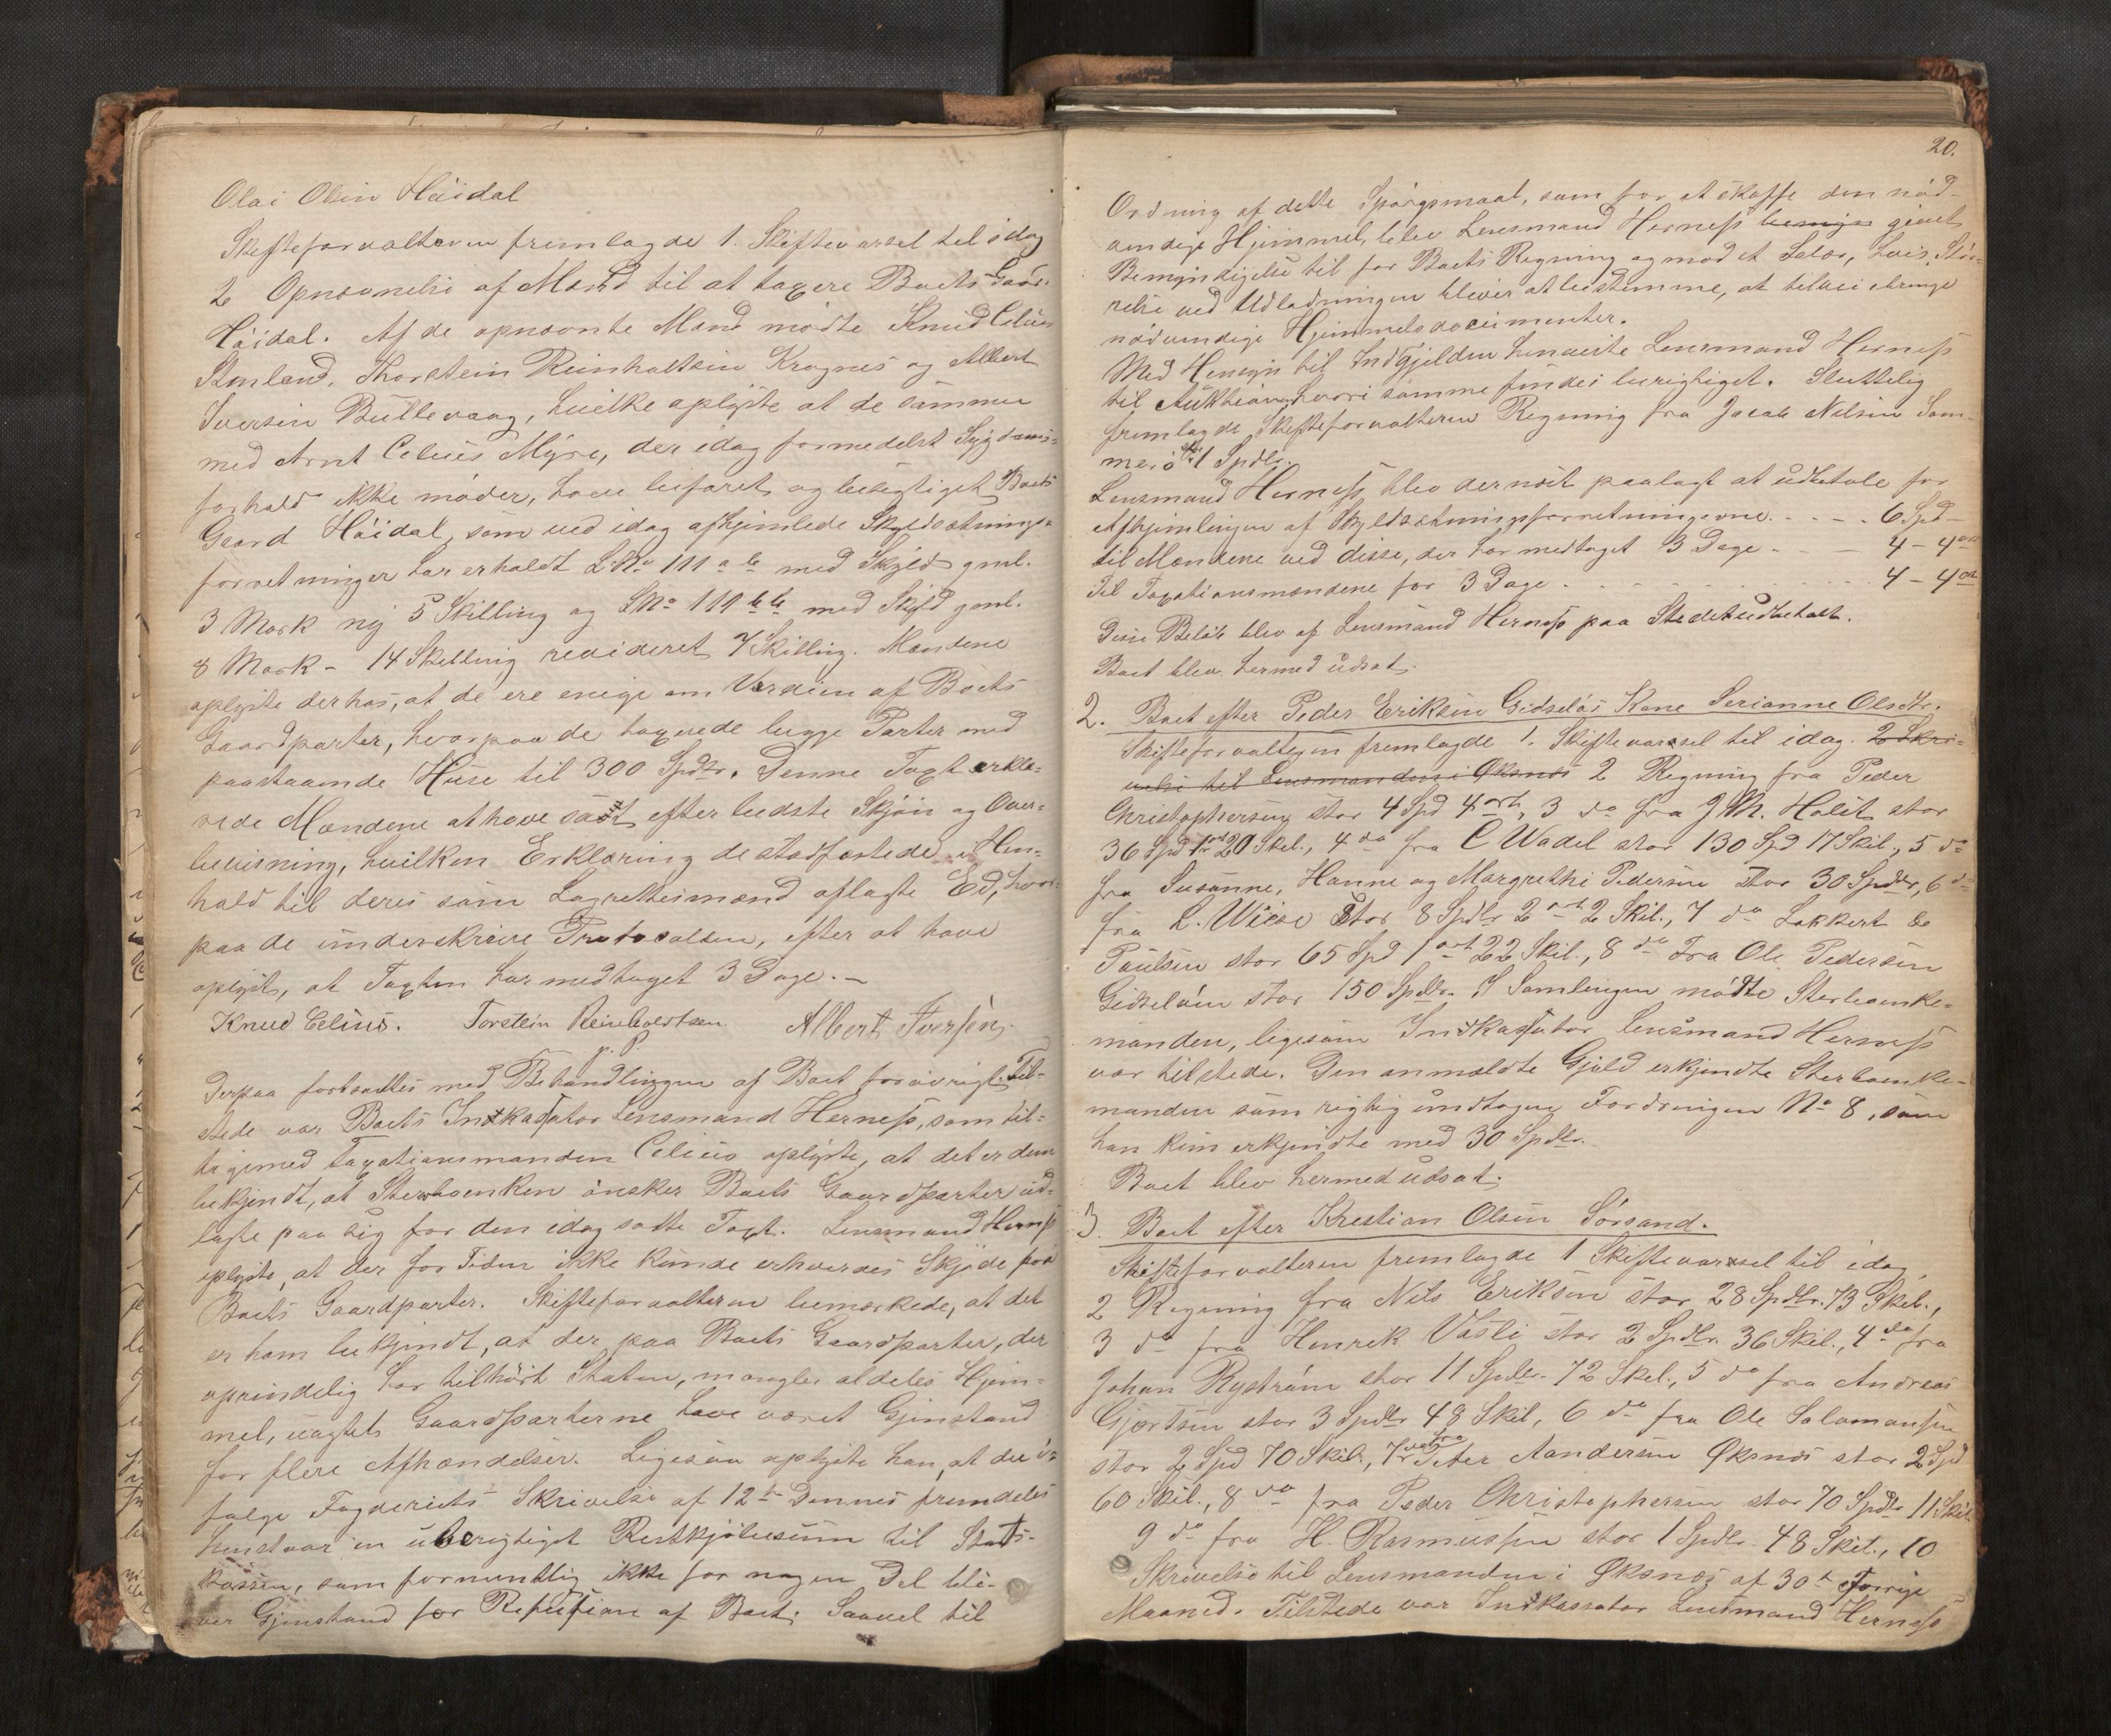 Olai Olsen Höidal
Skifteforvalteren fremlagde 1. Skiftevarsel til idag
2 Opnævnelse af Mænd til at taxere Boets Gaard
Höidal. Af de opnævnte Mænd mødte Knud Celius
Stenland, Thorstein Reinholtsen Kragnes og Albert
Iversen Bullevaag, hvilke oplyste at de sammen
med Arnt Celius Myre, der idag formedelst Sygdoms-
forhold ikke møder, have befaret og besigtiget Boets
Gaard Höidal, som ved idag afhjemlede Skyldsætnings-
forretninger har erholdt L.No 111 a b med Skyld gml.
3 Mark ny 5 Skilling og LNo 111 b b med Skyld gml.
8 Mark - 14 Skilling revideret 7 Skilling. Mændene
oplyste derhos, at de ere enige om Værdien af Boets
Gaardparter, hvorpaa de taxerede begge Parter med
paastaaende Huse til 300 Spdlr. Denne Taxt erklæ-
rede Mændene at have sat efter bedste Skjøn og Over-
beviisning, hvilken Erklæring de stadfæstede i Hen-
hold til deres som Lagrettesmænd aflagte Ed, hvor-
paa de underskrive Protocollen, efter at have
oplyst, at Taxten har medtaget 3 Dage. -
Knud Celius. Torstein Reinholdtsen Albert Iversen.
p. P.
Derpaa fortsattes med Behandlingen af Boet forøvrigt. Til-
stede var Boets Inkassator Lensmand Herness, som til-
ligemed Taxationsmanden Celius oplyste, at det er dem
bekjendt, at Sterboenken ønsker Boets Gaardparter ud-
lagte paa sig for den idag satte Taxt. Lensmand Herness
oplyste, at der for Tiden ikke kunde erhverves Skjøde paa
Boets Gaardparter. Skifteforvalteren bemærkede, at det
er ham bekjendt, at der paa Boets Gaardparter, der
oprindelig har tilhørt Staten, mangler aldeles Hjem-
mel, uagtet Gaardparterne have været Gjenstand
for flere Afhændelser. Ligesaa oplyste han, at der i-
følge Fogderiets Skrivelse af 12te Dennes fremdeles
henstaar en uberigtiget Restkjøbesum til Stats-
kassen, som formentlig ikke for nogen Del bli-
ver Gjenstand for Refusion af Boet. Saavel til
20.
Ordning af dette Spörgsmaal, som for at skaffe den nød-
vendige Hjemmel, blev Lensmand Herness bemyn givet
Bemyndigelse til for Boets Regning og mod et Salær, hvis Stör-
relse ved Udlodningen bliver at bestemme, at tilveiebringe
nödvendige Hjemmelsdocumenter.
Med Hensyn til Indgjelden henviste Lensmand Herness
til Auktionen, hvori samme findes berigtiget. Sluttelig
fremlagde Skifteforvalteren Regning fra Jacob Nilsen Som-
merö stor 1 Spdlr.
Lensmand Herness blev dernæst paalagt at udbetale for
Afhjemlingen af Skyldsætningsforretningerne. - - - 6 Spd -
til Mændene ved disse, der har medtaget 3 Dage - - 4 - 4 ort
Til Taxationsmændene for 3 Dage - - - - 4 - 4 ort
Disse Beløb blev af Lensmand Herness paa Stedet udbetalt.
Boet blev hermed udsat.
2. Boet efter Peder Eriksen Gidseløs Kone Serianne Olsdtr.
Skifteforvalteren fremlagde 1. Skiftevarsel til idag. 2 Skri-
velse til Lensmanden i Øksnæs 2 Regning fra Peder
Christophersen stor 4 Spd 4 ort, 3 do fra J M. Holst stor
36 Spd 1 ort 20 Skil., 4 do fra C Wadel stor 130 Spd 17 Skil., 5 do
fra Susanne, Hanne og Margrethe Pedersen stor 30 Spdlr, 6 do
fra L. Wiese stor 8 Spdlr 2 ort 2 Skil., 7 do Lokkert &
Paulsen stor 65 Spd 1 ort 22 Skil., 8 do Fra Ole Pedersen
Gidseløen stor 150 Spdlr. I Samlingen mødte Sterboenke-
manden, ligesom Inkassator Lensmand Herness
var tilstede. Den anmeldte Gjæld erkjendte Sterboenke-
manden som rigtig undtagen Fordringen No 8, som
han kun erkjendte med 30 Spdlr.
Boet blev hermed udsat.
3. Boet efter Kristian Olsen Sørsand.
Skifteforvalteren fremlagde 1 Skiftevarsel til idag,
2 Regning fra Nils Eriksen stor 28 Spdlr. 73 Skil.,
3 do fra Henrik Vasli stor 2 Spdlr. 36 Skil., 4 do fra
Johan Rystrøm stor 11 Spdlr. 72 Skil., 5 do fra Andreas
Gjærtsen stor 3 Spdlr 48 Skil, 6 do fra Ole Salomonsen
stor 2 Spd 70 Skil., 7 do fra Peter Aandersen Øksnæs stor 2 Spd
60 Skil., 8 do fra Peder Christophersen stor 70 Spdlr 11 Skil.
9 do fra H. Rasmussen stor 1 Spdlr. 48 Skil., 10
Skrivelse til Lensmanden i Øksnæs af 30te Forrige
Maaned. Tilstede var Inkassator Lensmand Herness